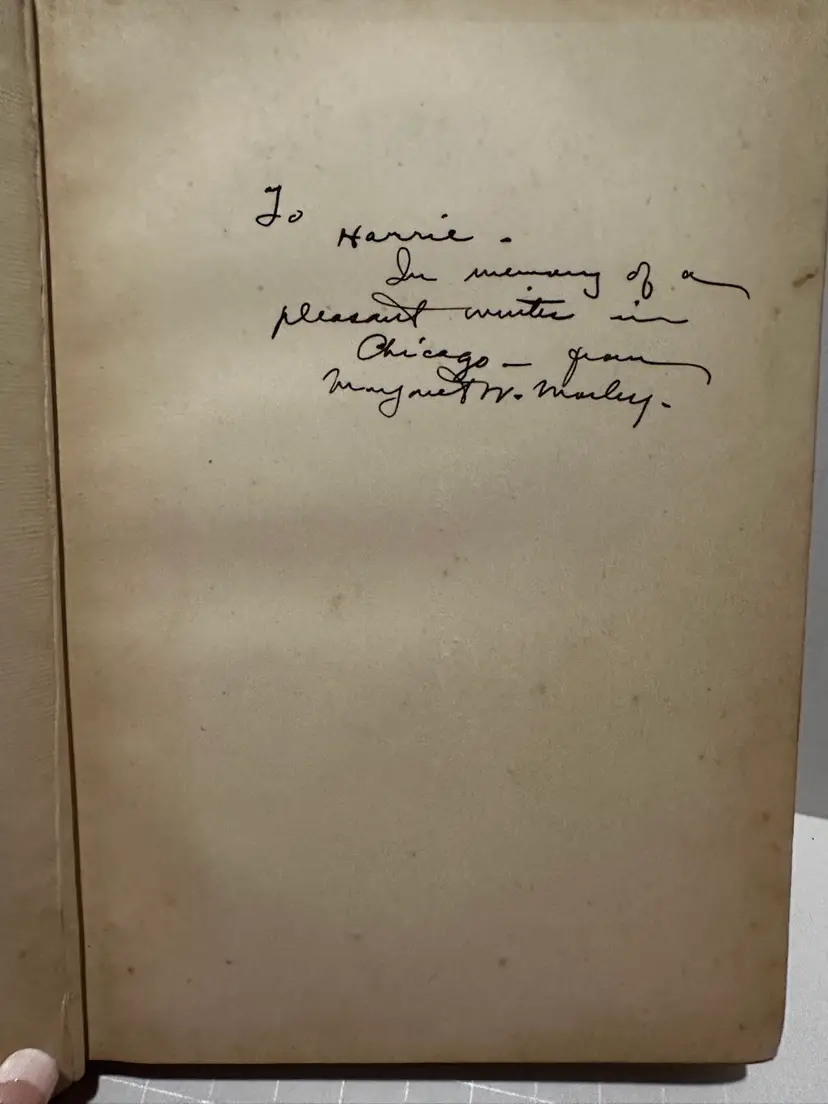 To
Harrie -
In memory of a
pleasant winter in
Chicago - from
Margaret W. Morley.